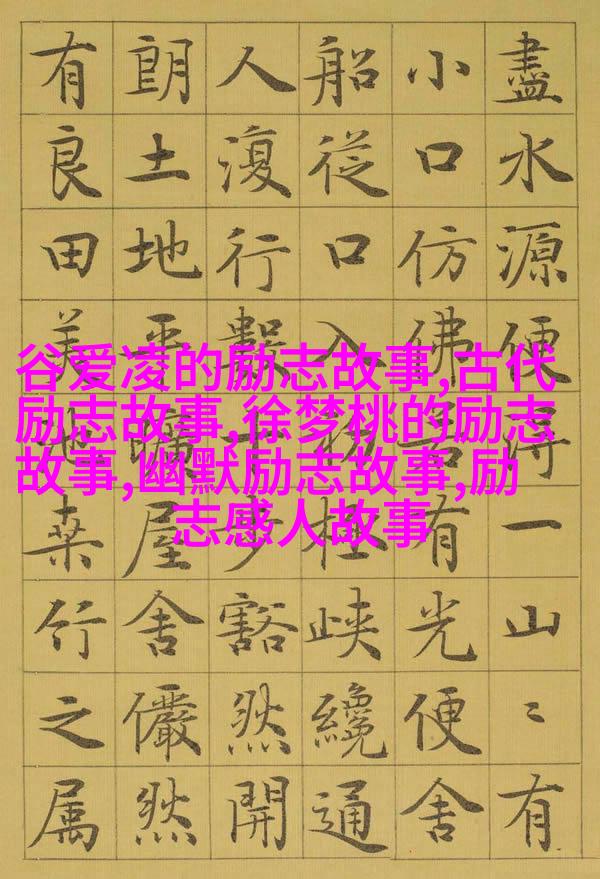 盡水源便得一山〻有
小口仿佛若有光便舍
船從口入初極峽纔通
人復行數十步豁然開
朗土地平曠屋舍儼然
有良田美池桑竹之属
谷爱凌的励志故事,古代
励志故事,徐梦桃的励志
故事,幽默励志故事,励
志感人故事